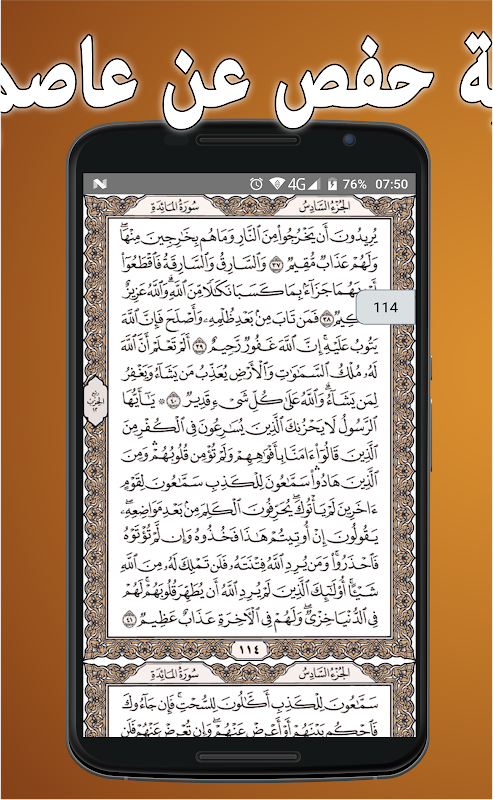 ية حفص عن عاصم
N 4G 76% 07:50
سُورَةُ المَائِدَةِ الجُزْءُ السَّادِسُ
يُرِيدُونَ أَن يَخْرُجُوا۟ مِنَ ٱلنَّارِ وَمَا هُم بِخَٰرِجِينَ مِنْهَا ۖ
وَلَهُمْ عَذَابٌ مُّقِيمٌ ٣٧ وَٱلسَّارِقُ وَٱلسَّارِقَةُ فَٱقْطَعُوٓا۟
أَيْدِيَهُمَا جَزَآءًۢ بِمَا كَسَبَا نَكَٰلًا مِّنَ ٱللَّهِ ۗ وَٱللَّهُ عَزِيزٌ
114
حَكِيمٌ ٣٨ فَمَن تَابَ مِنۢ بَعْدِ ظُلْمِهِۦ وَأَصْلَحَ فَإِنَّ ٱللَّهَ
يَتُوبُ عَلَيْهِ ۗ إِنَّ ٱللَّهَ غَفُورٌ رَّحِيمٌ ٣٩ أَلَمْ تَعْلَمْ أَنَّ ٱللَّهَ
لَهُۥ مُلْكُ ٱلسَّمَٰوَٰتِ وَٱلْأَرْضِ يُعَذِّبُ مَن يَشَآءُ وَيَغْفِرُ
لِمَن يَشَآءُ ۗ وَٱللَّهُ عَلَىٰ كُلِّ شَىْءٍ قَدِيرٌ ٤٠ يَٰٓأَيُّهَا
ٱلرَّسُولُ لَا يَحْزُنكَ ٱلَّذِينَ يُسَٰرِعُونَ فِى ٱلْكُفْرِ مِنَ
ٱلَّذِينَ قَالُوٓا۟ ءَامَنَّا بِأَفْوَٰهِهِمْ وَلَمْ تُؤْمِن قُلُوبُهُمْ ۛ وَمِنَ
ٱلَّذِينَ هَادُوا۟ ۛ سَمَّٰعُونَ لِلْكَذِبِ سَمَّٰعُونَ لِقَوْمٍ
ءَاخَرِينَ لَمْ يَأْتُوكَ ۖ يُحَرِّفُونَ ٱلْكَلِمَ مِنۢ بَعْدِ مَوَاضِعِهِۦ ۖ
يَقُولُونَ إِنْ أُوتِيتُمْ هَٰذَا فَخُذُوهُ وَإِن لَّمْ تُؤْتَوْهُ
فَٱحْذَرُوا۟ ۚ وَمَن يُرِدِ ٱللَّهُ فِتْنَتَهُۥ فَلَن تَمْلِكَ لَهُۥ مِنَ ٱللَّهِ
شَيْـًٔا ۚ أُو۟لَٰٓئِكَ ٱلَّذِينَ لَمْ يُرِدِ ٱللَّهُ أَن يُطَهِّرَ قُلُوبَهُمْ ۚ لَهُمْ
فِى ٱلدُّنْيَا خِزْىٌ ۖ وَلَهُمْ فِى ٱلْءَاخِرَةِ عَذَابٌ عَظِيمٌ ٤١
١١٤
سُورَةُ المَائِدَةِ الجُزْءُ السَّادِسُ
سَمَّٰعُونَ لِلْكَذِبِ أَكَّٰلُونَ لِلسُّحْتِ ۚ فَإِن جَآءُوكَ
فَٱحْكُم بَيْنَهُمْ أَوْ أَعْرِضْ عَنْهُمْ ۖ وَإِن تُعْرِضْ عَنْهُمْ فَلَن